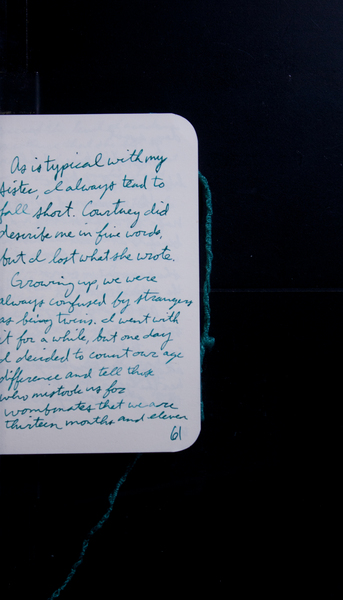 As is typical with my
sister, I always tend to
fall short. Courtney did
describe me in five words,
but I lost what she wrote.
Growing up, we were
always confused by strangers
as being twins. I went with
it for a while, but one day
I decided to count our age
difference and tell those
who mistook us for
wombmates that we are
thirteen months and eleven
61